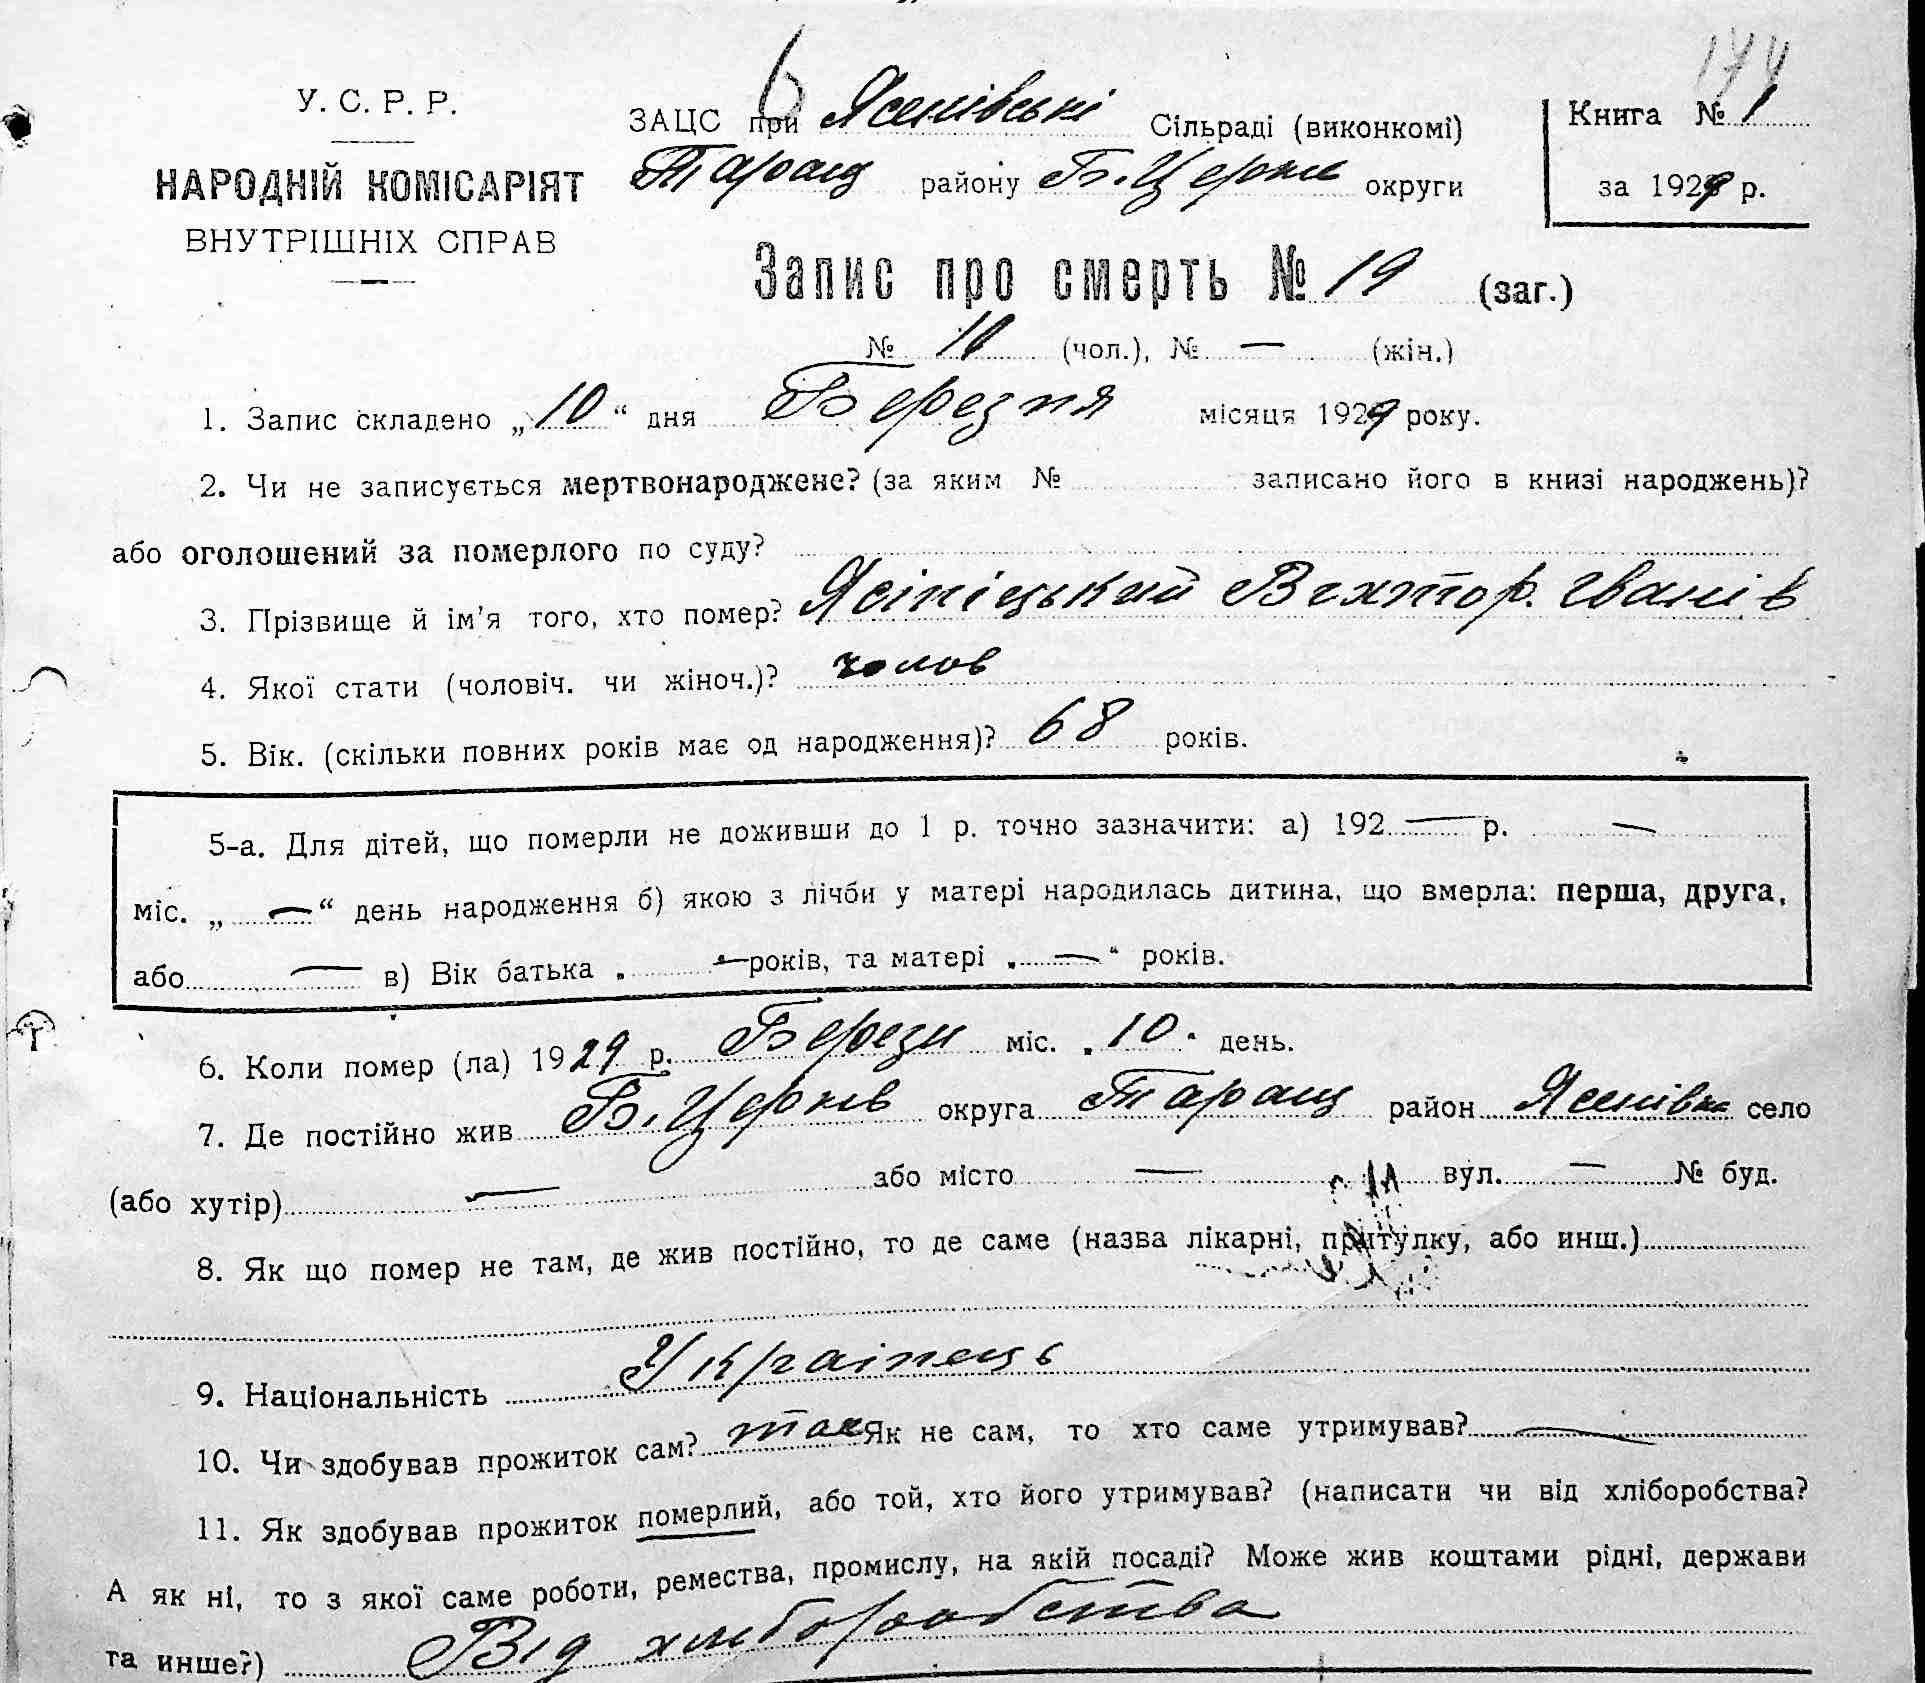 174
6
У. С. Р. Р.
НАРОДНІЙ КОМІСАРІЯТ
ВНУТРІШНІХ СПРАВ
ЗАЦС при Ясенівські Сільраді (виконкомі)
Таращ району Б. Церків округи
Книга № 1
за 1929 р.
Запис про смерть № 19 (заг.)
№ 10 (чол.), № — (жін.)
1. Запис складено „10“ дня Березня місяця 1929 року.
2. Чи не записується мертвонароджене? (за яким № записано його в книзі народжень)?
або оголошений за померлого по суду?
3. Прізвище й ім'я того, хто помер? Ясініцький Віктор. Іванів
4. Якої стати (чоловіч. чи жіноч.)? чолов
5. Вік. (скільки повних років має од народження)? 68 років.
5-а. Для дітей, що померли не доживши до 1 р. точно зазначити: а) 192 — р. —
міс. „ — “ день народження б) якою з лічби у матері народилась дитина, що вмерла: перша, друга,
або — в) Вік батька „ — років, та матері „ — “ років.
6. Коли помер (ла) 1929 р. Березн міс. „10“ день.
7. Де постійно жив Б. Церків округа Таращ район Ясенівка село
(або хутір) — або місто — вул. — № буд.
8. Як що помер не там, де жив постійно, то де саме (назва лікарні, притулку, або инш.)
9. Національність Українець
10. Чи здобував прожиток сам? так Як не сам, то хто саме утримував? —
11. Як здобував прожиток померлий, або той, хто його утримував? (написати чи від хліборобства?
А як ні, то з якої саме роботи, ремества, промислу, на якій посаді? Може жив коштами рідні, держави
та инше?) Від хліборобства